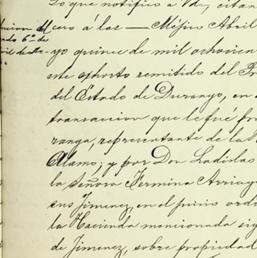 Lo que notifico a Vd, citan
ceso á las — Méjico Abril
yo quince de mil ochocien
este exhorto remitido del
del Estado de Durango, en
transacion que le fué
ranga, representante de la
Alamo; y por Don Ladislao
la Señora Fermina Arrieg
sus jimenez, en el juicio ordi
la Hacienda mencionada sig
de Jimenez, sobre propiedad